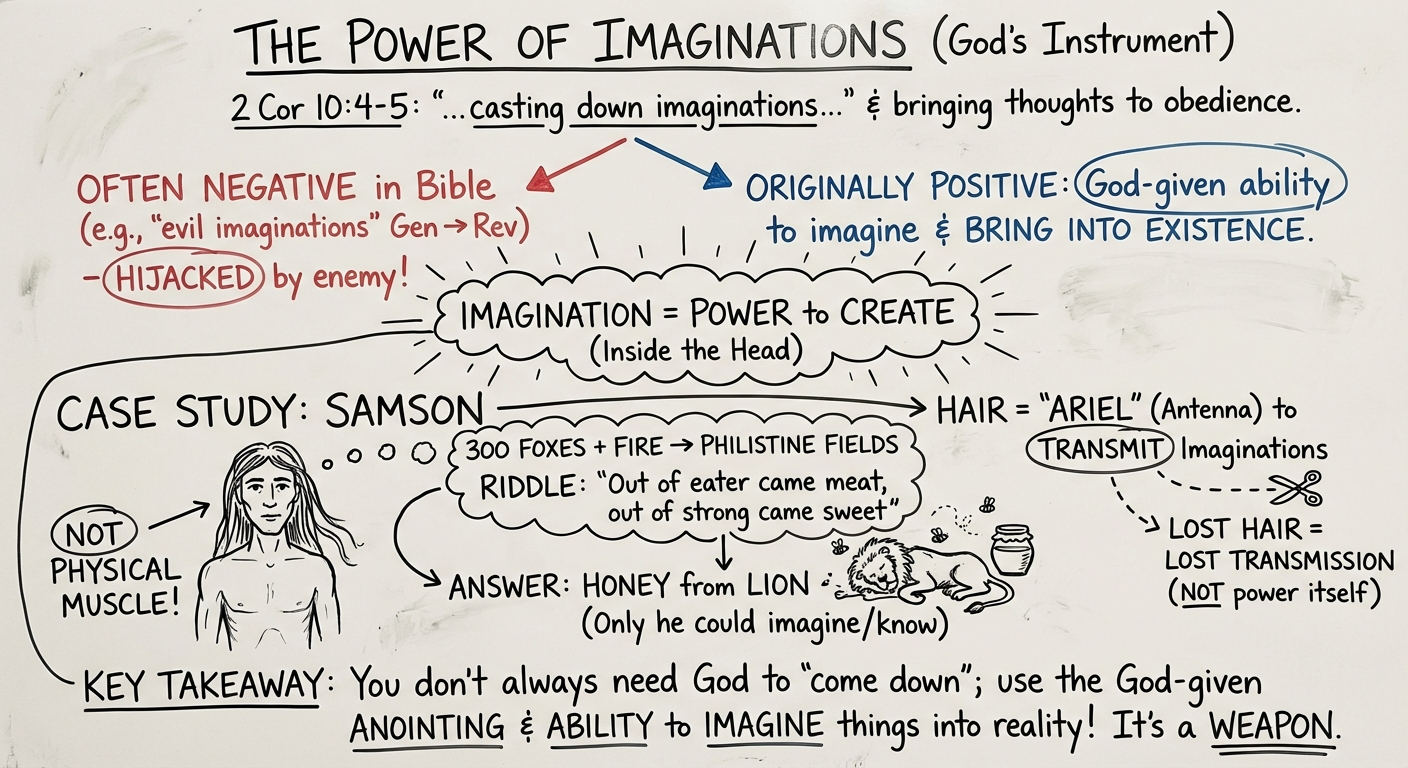 THE POWER OF IMAGINATIONS (God's Instrument)
2 Cor 10:4-5: "...casting down imaginations..." & bringing thoughts to obedience.
OFTEN NEGATIVE in Bible
(e.g., "evil imaginations" Gen → Rev)
- HIJACKED by enemy!
ORIGINALLY POSITIVE: God-given ability
to imagine & BRING INTO EXISTENCE.
IMAGINATION = POWER to CREATE
(Inside the Head)
CASE STUDY: SAMSON
HAIR = "ARIEL" (Antenna) to
TRANSMIT Imaginations
300 FOXES + FIRE → PHILISTINE FIELDS
RIDDLE: "Out of eater came meat,
out of strong came sweet"
NOT
PHYSICAL
MUSCLE!
ANSWER: HONEY from LION
(Only he could imagine/know)
LOST HAIR =
LOST TRANSMISSION
(NOT power itself)
KEY TAKEAWAY: You don't always need God to "come down"; use the God-given
ANOINTING & ABILITY to IMAGINE things into reality! It's a WEAPON.